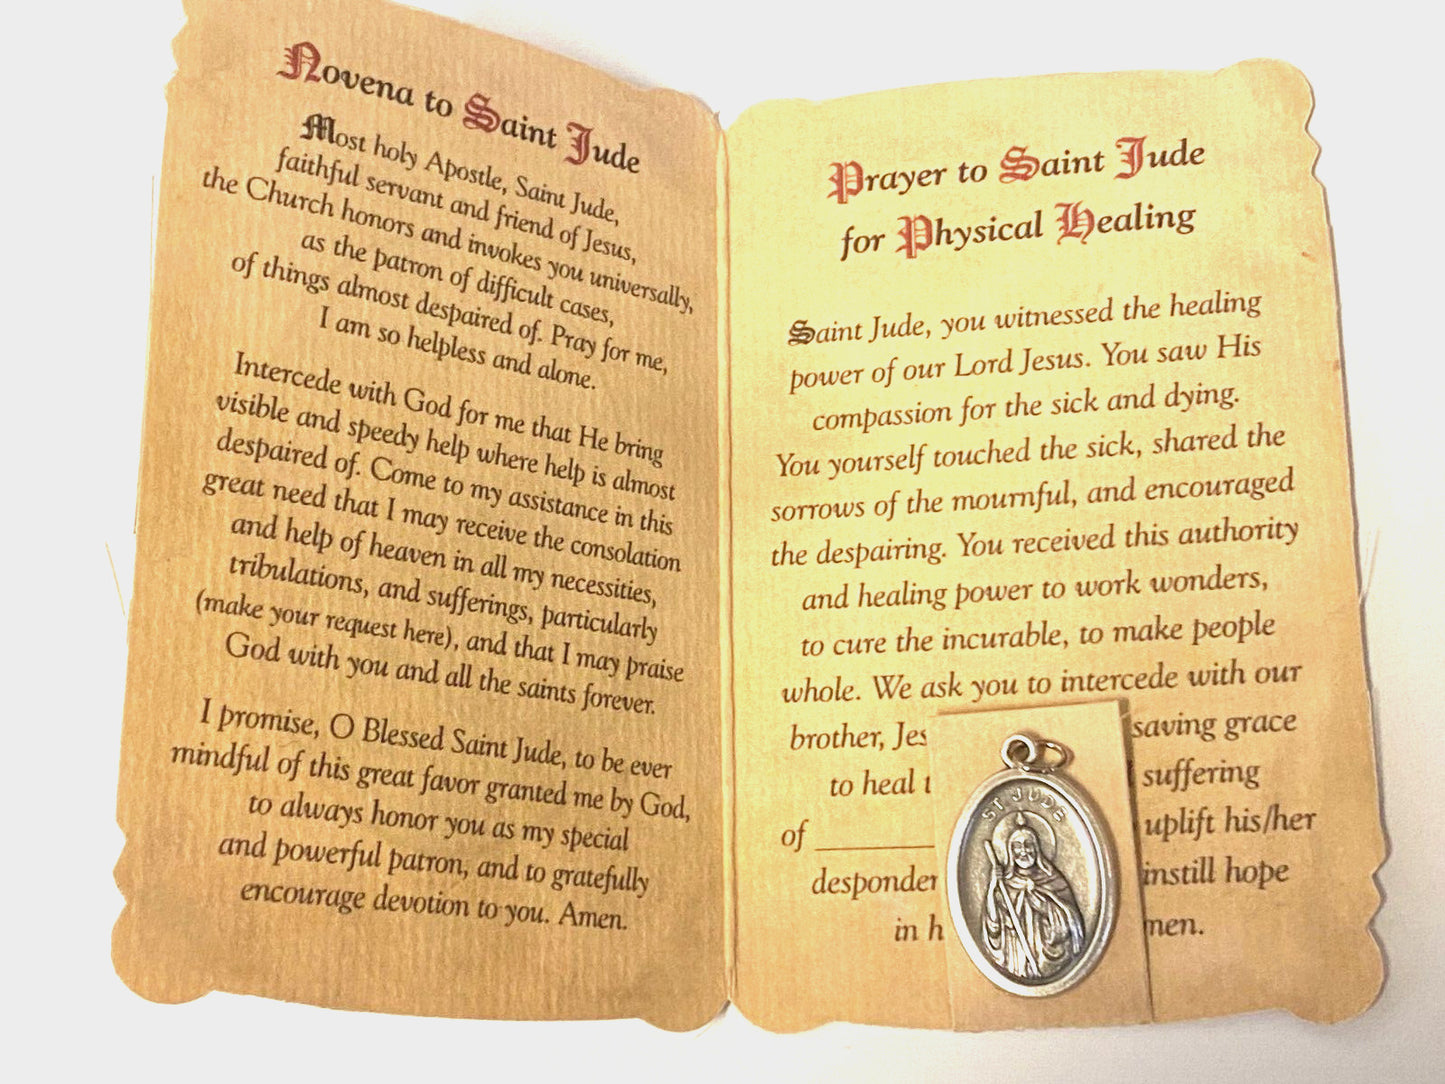 Novena to Saint Jude
Most holy Apostle, Saint Jude,
faithful servant and friend of Jesus,
the Church honors and invokes you universally,
as the patron of difficult cases,
of things almost despaired of. Pray for me,
I am so helpless and alone.
Intercede with God for me that He bring
visible and speedy help where help is almost
despaired of. Come to my assistance in this
great need that I may receive the consolation
and help of heaven in all my necessities,
tribulations, and sufferings, particularly
(make your request here), and that I may praise
God with you and all the saints forever.
I promise, O Blessed Saint Jude, to be ever
mindful of this great favor granted me by God,
to always honor you as my special
and powerful patron, and to gratefully
encourage devotion to you. Amen.
Prayer to Saint Jude
for Physical Healing
Saint Jude, you witnessed the healing
power of our Lord Jesus. You saw His
compassion for the sick and dying.
You yourself touched the sick, shared the
sorrows of the mournful, and encouraged
the despairing. You received this authority
and healing power to work wonders,
to cure the incurable, to make people
whole. We ask you to intercede with our
brother, Jes saving grace
to heal suffering
of uplift his/her
desponde instill hope
in h men.
ST JUDE